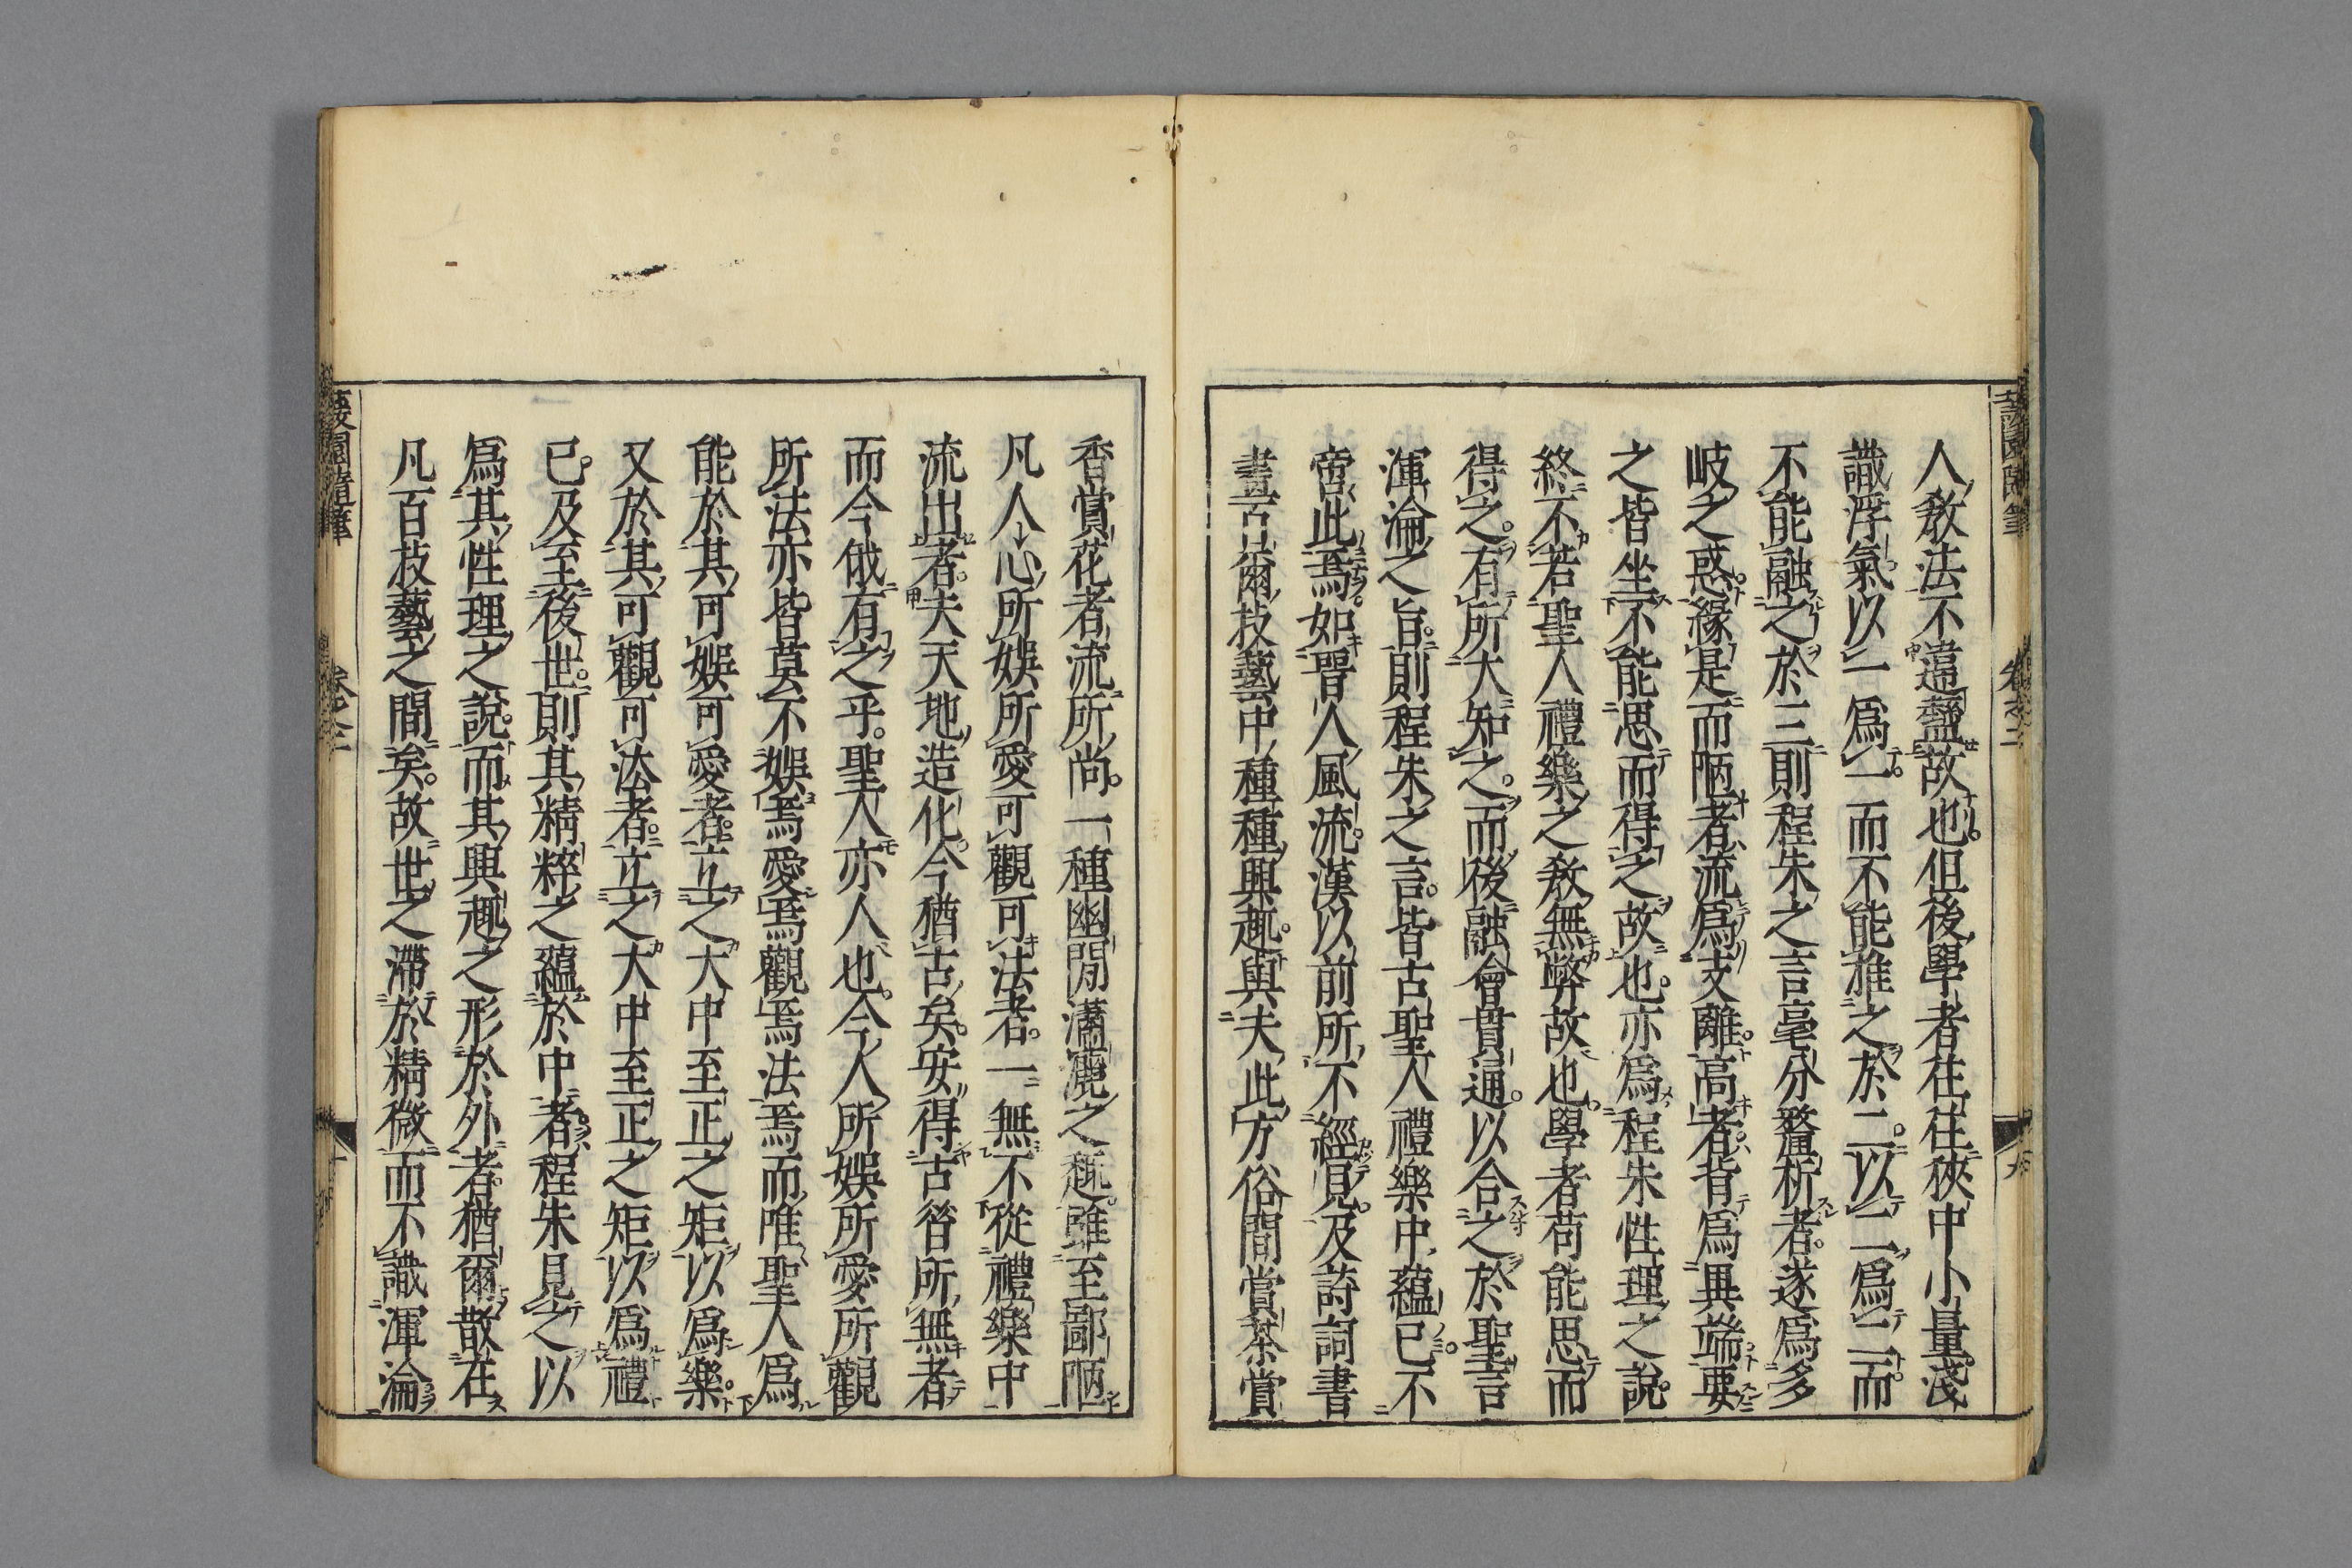 人教法不違蠶故也但後學者往往狹中小量淺
識浮氣以一爲一而不能推之於二以二爲二而
不能融之於三則程朱之言毫分釐析者遂爲多
岐之惑緣是而陋者流爲支離高者背爲異端要
之皆坐不能思而得之故也亦爲程朱性理之說
終不若聖人禮樂之教無弊故也學者苟能思而
得之有所大知之而後融會貫通以合之於聖言
渾淪之旨則程朱之言皆古聖人禮樂中蘊已不
啻此焉如晉人風流漢以前所不經見及詩詞書
畫亦爾技藝中種種興趣與夫此方俗間賞茶賞
香賞花者流所尚一種幽閒瀟灑之趣雖至鄙陋
凡人心所娛所愛可觀可法者一無不從禮樂中
流出者夫天地造化今猶古矣安得古昔所無者
而今俄有之乎聖人亦人也今人所娛所愛所觀
所法亦皆莫不娛焉愛焉觀焉法焉而唯聖人爲
能於其可娛可愛者立之大中至正之矩以爲樂
又於其可觀可法者立之大中至正之矩以爲禮
已及至後世則其精粹之蘊於中者程朱見之以
爲其性理之說而其興趣之形於外者猶爾散在
凡百技藝之間矣故世之滯於精微而不識渾淪
蘐園隨筆 卷之二 九